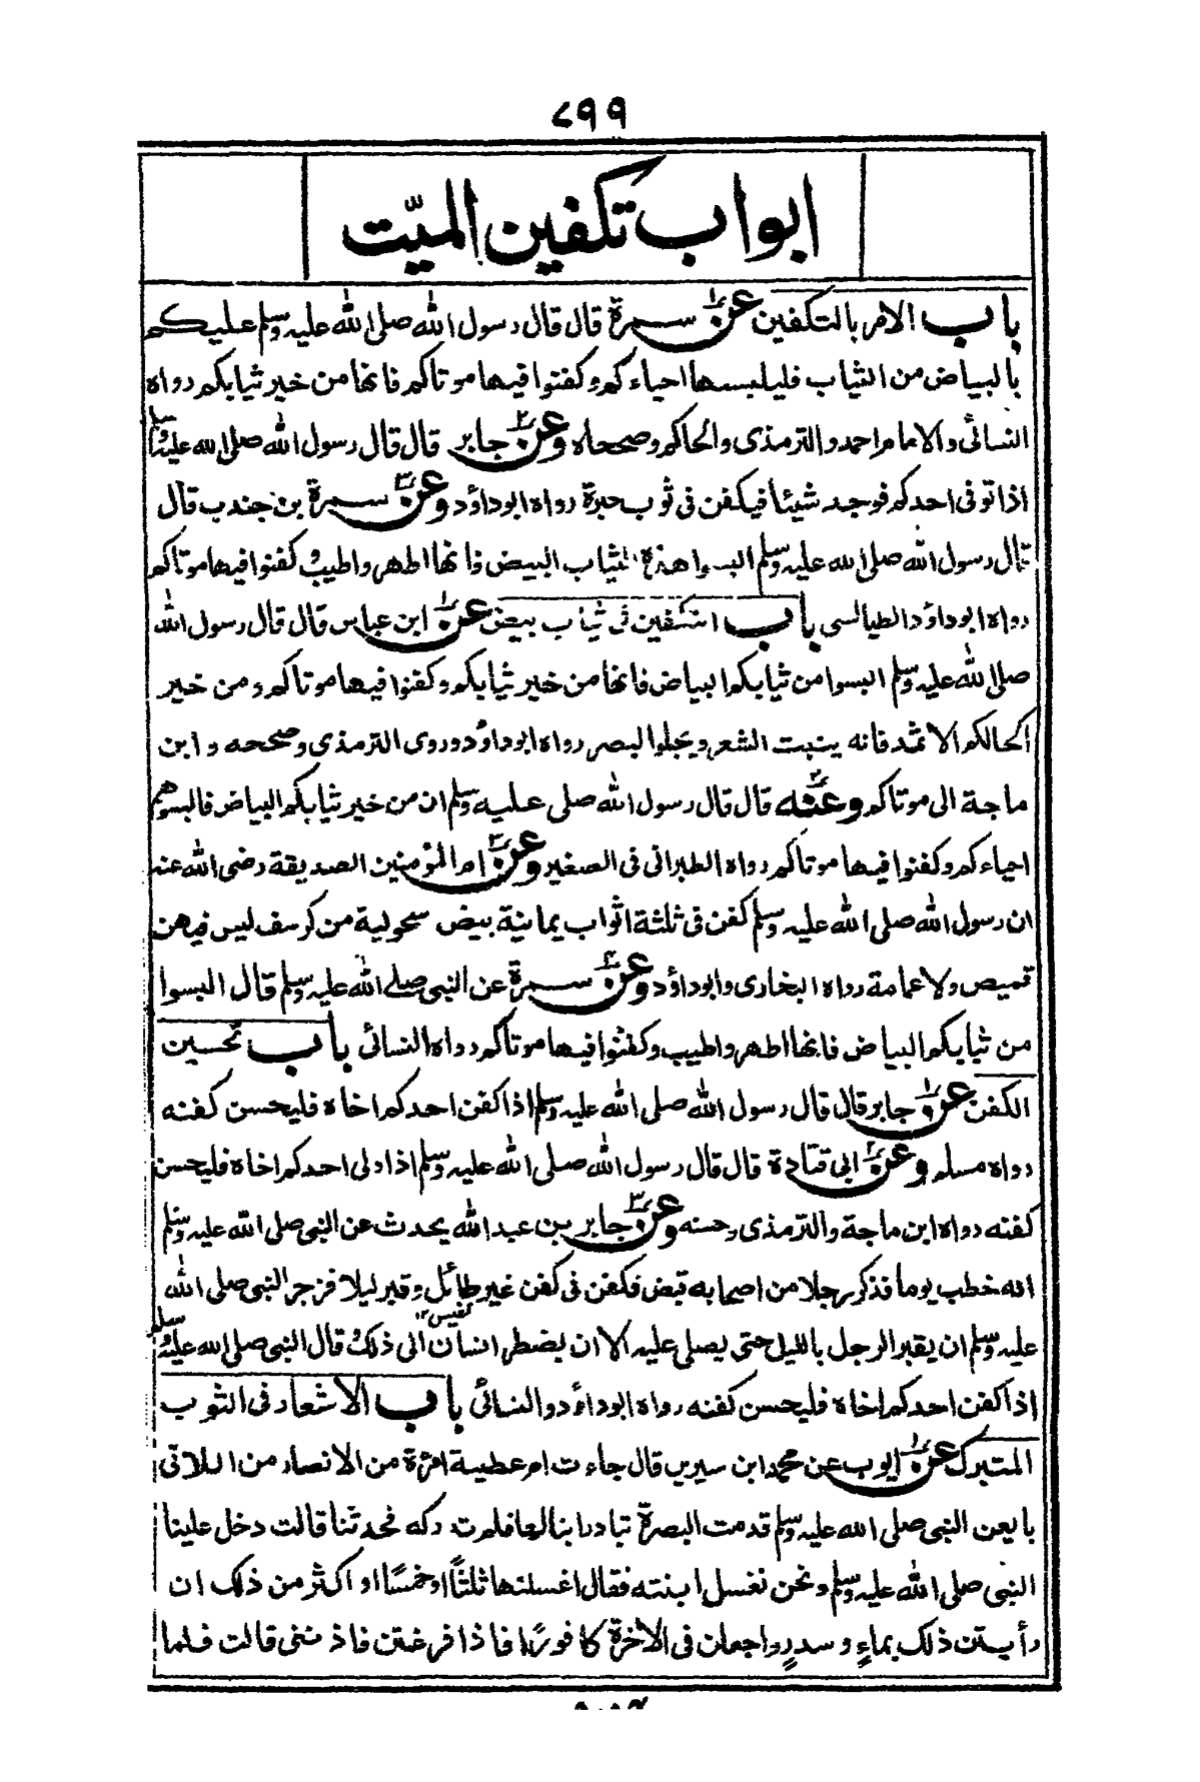 ٧٩٩
ابواب تكفين الميّت
باب الامر بالتكفين عن سمرة قال قال رسول الله صلى الله عليه وسلم عليكم
بالبياض من الثياب فليلبسها احياءكم وكفنوا فيها موتاكم فانها من خير ثيابكم رواه
النسائى والامام احمد والترمذى والحاكم وصححاه وعن جابر قال قال رسول الله صلى الله عليه وسلم
اذا توفى احدكم فوجد شيئا فيكفن فى ثوب حبرة رواه ابوداؤد وعن سمرة بن جندب قال
قال رسول الله صلى الله عليه وسلم البسوا هذه الثياب البيض فانها اطهر واطيب كفنوا فيها موتاكم
رواه ابوداؤد الطيالسى باب التكفين فى ثياب بيض عن ابن عباس قال قال رسول الله
صلى الله عليه وسلم البسوا من ثيابكم البياض فانها من خير ثيابكم وكفنوا فيها موتاكم ومن خير
اكحالكم الاثمد فانه ينبت الشعر ويجلو البصر رواه ابوداؤد وروى الترمذى وصححه وابن
ماجة الى موتاكم وعنه قال قال رسول الله صلى عليه وسلم ان من خير ثيابكم البياض فالبسوهم
احياءكم وكفنوا فيها موتاكم رواه الطبرانى فى الصغير وعن ام المؤمنين الصديقة رضى الله عنه
ان رسول الله صلى الله عليه وسلم كفن فى ثلثة اثواب يمانية بيض سحولية من كرسف ليس فيهن
قميص ولا عمامة رواه البخارى وابوداؤد وعن سمرة عن النبى صلى الله عليه وسلم قال البسوا
من ثيابكم البياض فانها اطهر واطيب وكفنوا فيها موتاكم رواه النسائى باب تحسين
الكفن عن جابر قال قال رسول الله صلى الله عليه وسلم اذا كفن احدكم اخاه فليحسن كفنه
رواه مسلم وعن ابى قتادة قال قال رسول الله صلى الله عليه وسلم اذا ولى احدكم اخاه فليحسن
كفنه رواه ابن ماجة والترمذى وحسنه وعن جابر بن عبد الله يحدث عن النبى صلى الله عليه وسلم
انه خطب يوما فذكر رجلا من اصحابه قبض فكفن فى كفن غير طائل وقبر ليلا فزجر النبى صلى الله
نفيس١٢
عليه وسلم ان يقبر الرجل بالليل حتى يصلى عليه الا ان يضطر انسان الى ذلك قال النبى صلى الله عليه وسلم
اذا كفن احدكم اخاه فليحسن كفنه رواه ابوداؤد والنسائى باب الاشعار فى الثوب
المتبرك عن ايوب عن محمد ابن سيرين قال جاءت ام عطية امرأة من الانصار من اللاتى
بايعن النبى صلى الله عليه وسلم قدمت البصرة تبادر ابنا لها فلم تدركه فحدثنا قالت دخل علينا
النبى صلى الله عليه وسلم ونحن نغسل ابنته فقال اغسلنها ثلثًا او خمسًا او اكثر من ذلك ان
رأيتن ذلك بماءٍ وسدرٍ واجعلن فى الآخرة كافورًا فاذا فرغتن فاذننى قالت فلما